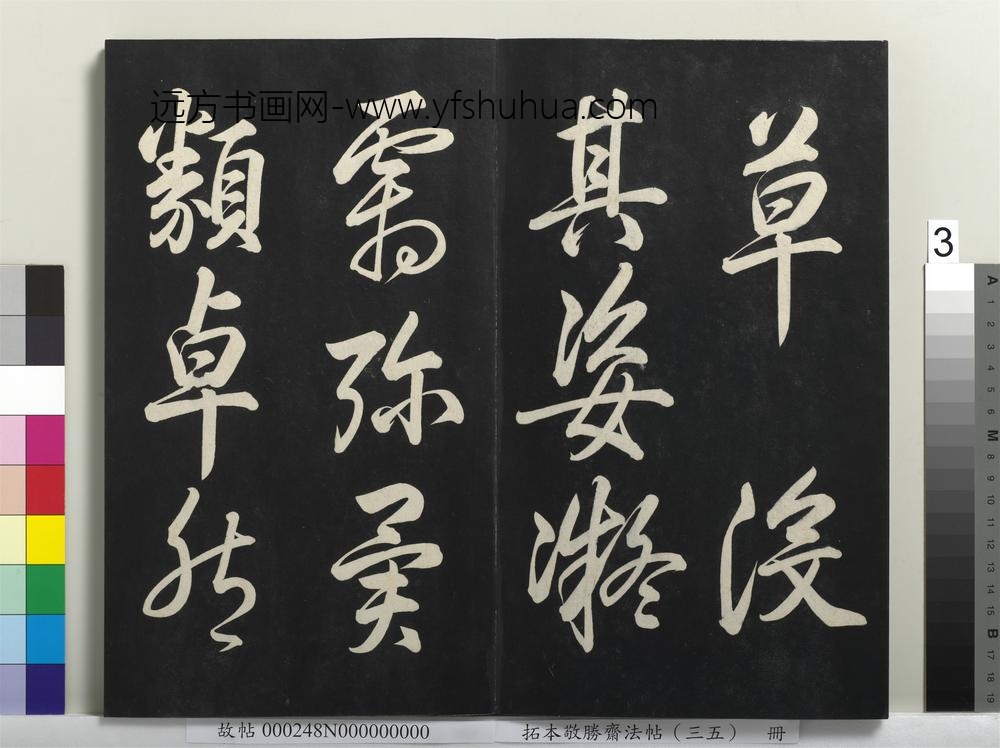 远方书画网-www.yfshuhua.com
草沒
其姿凝
霜殄異
類卓然
3
A
1
2
3
4
5
6
M
8
9
10
11
12
13
14
15
B
17
18
19
故帖 000248N000000000
拓本敬勝齋法帖（三五） 冊